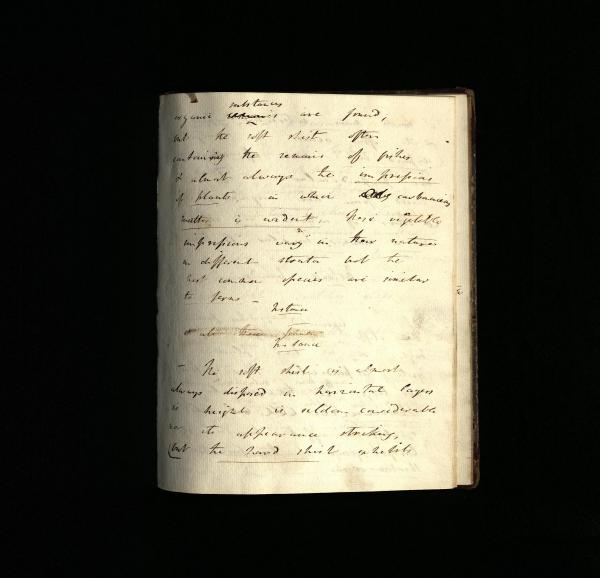 substances
organic remains are found,
but the soft shist often
containing the remains of fishes
& almost always the impressions
of plants in which carbonaceous
matter is evident, these vegetable
impressions vary in their natures
in different strata but the
most common species are similar
to ferns –
Instance
Instance
– The soft shist is almost
always disposed in horizontal layers
its height is seldom considerable
nor its appearance striking,
(but the hard shist exhibits